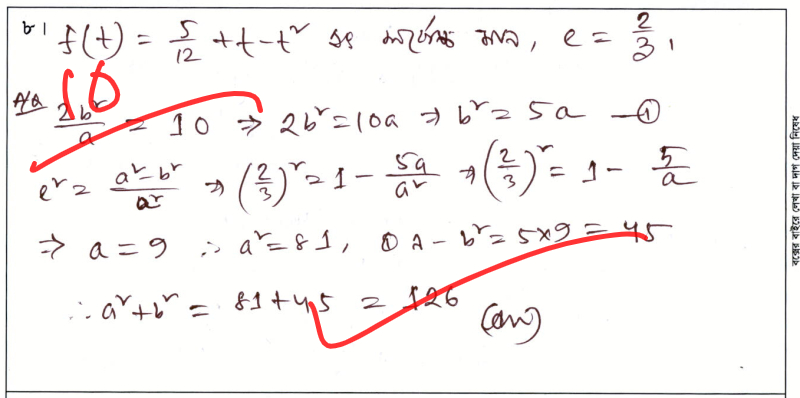 ৮। f(t) = 5/12 + t - t² এর সর্বোচ্চ মান, e = 2/3,
10
A/Q 2b²/a = 10 ⇒ 2b² = 10a ⇒ b² = 5a —①
e² = (a²-b²)/a² ⇒ (2/3)² = 1 - 5a/a² ⇒ (2/3)² = 1 - 5/a
⇒ a = 9 ∴ a² = 81, ① এ - b² = 5×9 = 45
∴ a²+b² = 81+45 = 126 (ans)
বক্সের বাইরে লেখা বা দাগ দেয়া নিষেধ